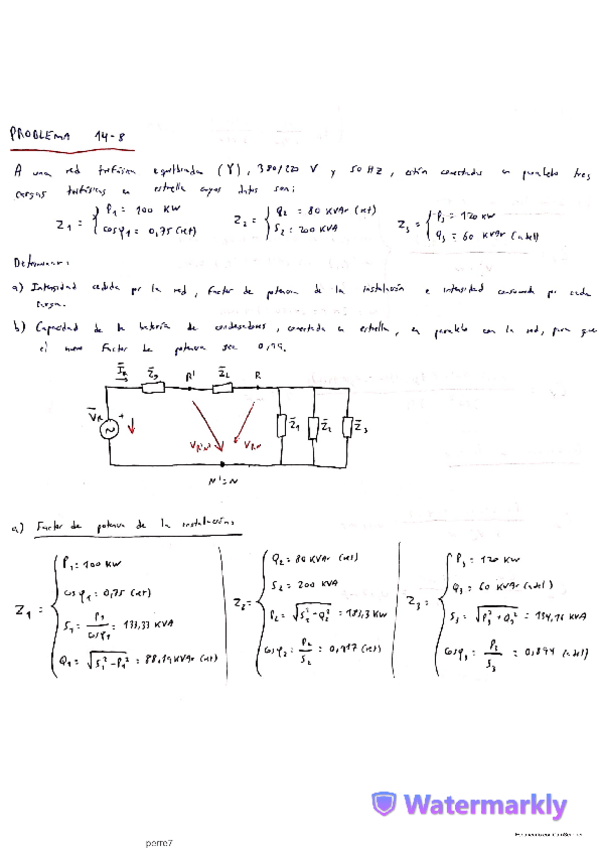 PROBLEMA 14-8
A una red trifásica equilibrada (Y), 380/220 V y 50 Hz, están conectadas en paralelo tres
cargas trifásicas en estrella cuyos datos son:
Z1 = { P1 = 100 KW
cosφ1 = 0,75 (ret)
Z2 = { Q2 = 80 KVAr (ret)
S2 = 200 KVA
Z3 = { P3 = 120 KW
Q3 = 60 KVAr (adel)
Determinar:
a) Intensidad cedida por la red, factor de potencia de la instalación e intensidad consumida por cada
carga.
b) Capacidad de la batería de condensadores, conectada en estrella, en paralelo con la red, para que
el nuevo factor de potencia sea 0,99.
I̅R Z̅g R' Z̅L R
V̅R +
VR'N' VRN
Z̅1 Z̅2 Z̅3
N'=N
a) Factor de potencia de la instalación:
Z1 = { P1 = 100 KW
cosφ1 = 0,75 (ret)
S1 = P1/cosφ1 = 133,33 KVA
Q1 = √S1²-P1² = 88,19 KVAr (ret)
Z2 = { Q2 = 80 KVAr (ret)
S2 = 200 KVA
P2 = √S2²-Q2² = 183,3 KW
cosφ2 = P2/S2 = 0,917 (ret)
Z3 = { P3 = 120 KW
Q3 = 60 KVAr (adel)
S3 = √P3²+Q3² = 134,16 KVA
cosφ3 = P3/S3 = 0,894 (adel)
Watermarkly
perre7